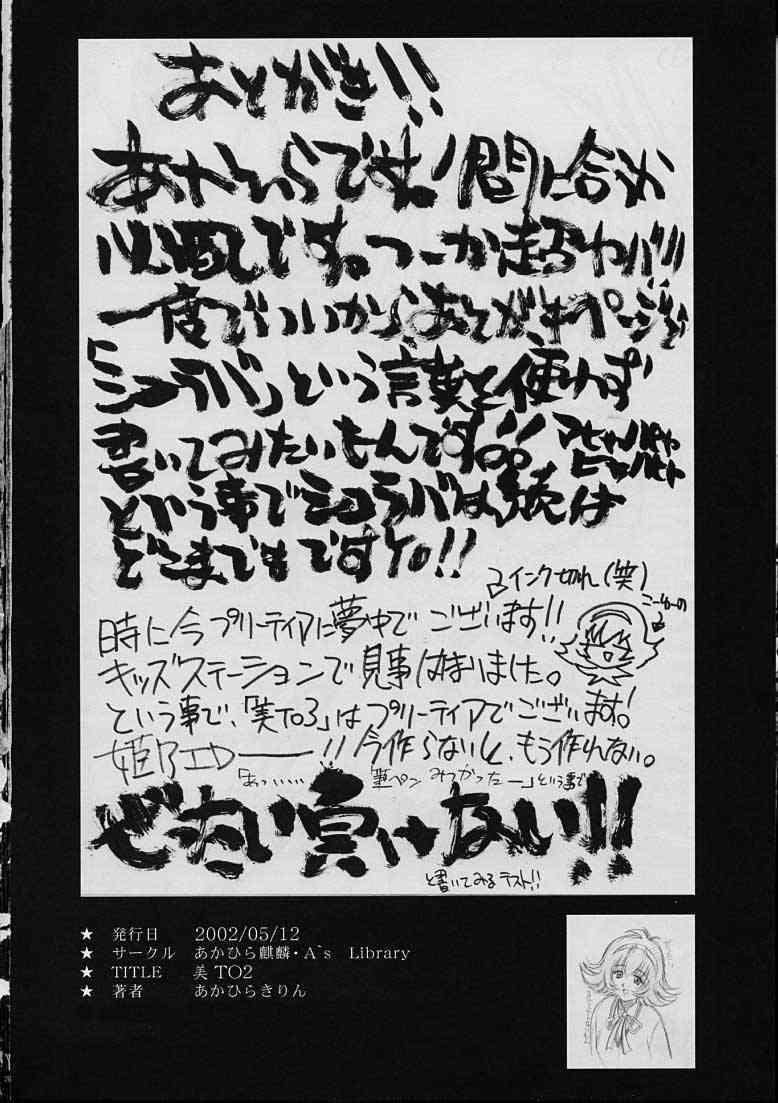 あとがき!!
あかひらです。!間に合うか
心配です。つーか超ヤバ!!!
一度でいいから、あとがきページで
「シュラバ」という言葉を使わず
書いてみたいもんです!!
という事でシュラバは続くは
どこまでもですケロ!!
インク切れ(笑)
時に今プリーティアに夢中でございます!!
キッズステーションで見事はまりました。
という事で、「美TO3」はプリーティアでございます!
姫やエロー!!今作らないと、もう作れない。
「あっ…… 筆ペン みつかったー」という事で
ぜったい負けない!!!
と書いてみるテスト!!
★ 発行日 2002/05/12
★ サークル あかひら麒麟・A`s Library
★ TITLE 美 TO2
★ 著者 あかひらきりん